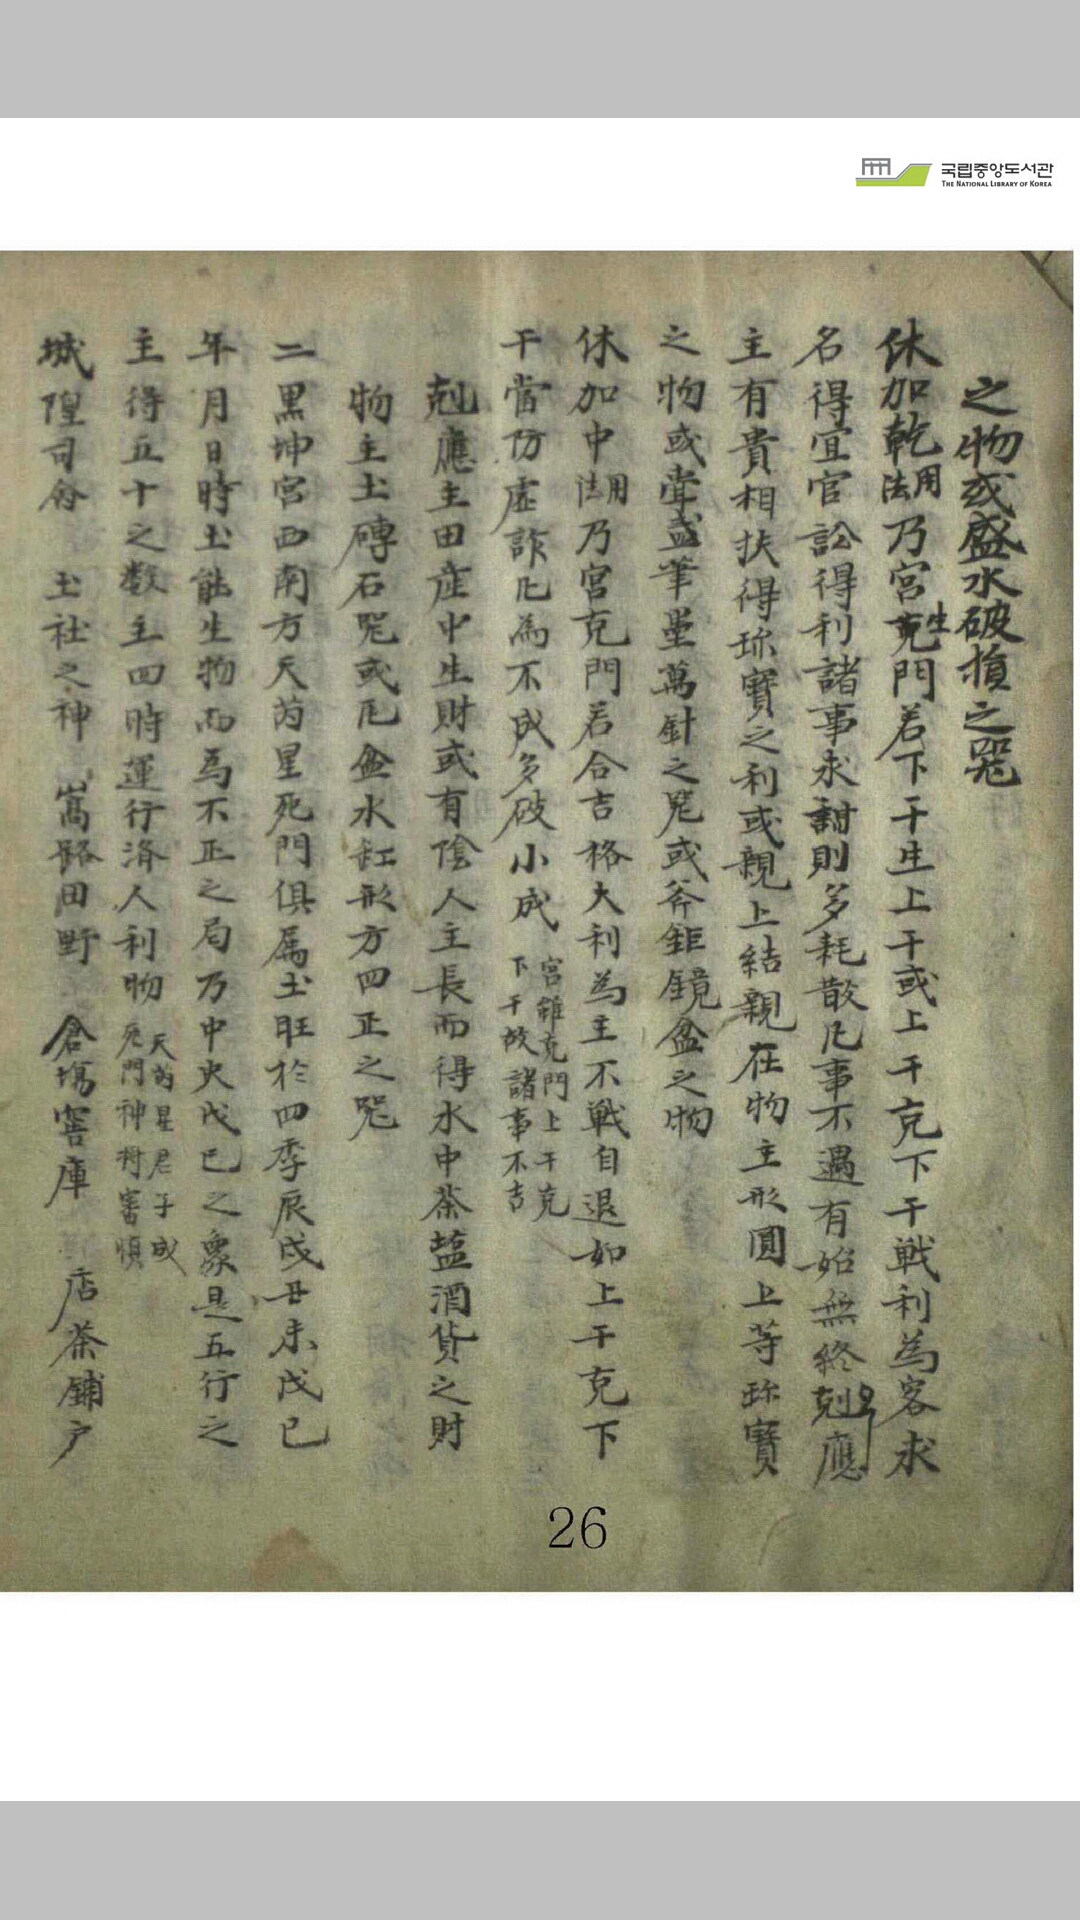 국립중앙도서관
THE NATIONAL LIBRARY OF KOREA
之物或盛水破損之器
休加乾用法乃宮生克門若下干生上干或上干克下干戦利為客求
名得宜官訟得利諸事求謀則多耗散凡事不遇有始無終剋應
主有貴相扶得珎寶之利或親上結親在物主形圓上等珎寶
之物或筆墨萬針之器或斧鉅鏡盆之物
休加中用法乃宮克門若合吉格大利為主不戦自退如上干克下
干當防虛詐凡為不成多破小成 宮雖克門上干克下干故諸事不吉
剋應主田産中生財或有陰人主長而得水中茶盐酒貨之財
物主土磚石器或瓦盆水缸形方四正之器
二黒坤宮西南方天芮星死門俱属土旺於四季辰戌丑未戊己
年月日時土能生物而為不正之局乃中央戊己之象是五行之
主得五十之数主四時運行済人利物 天芮星君子成死門神将審慎
城隍司命 土社之神 嵩路田野 倉塲窖庫 店茶鋪户
26